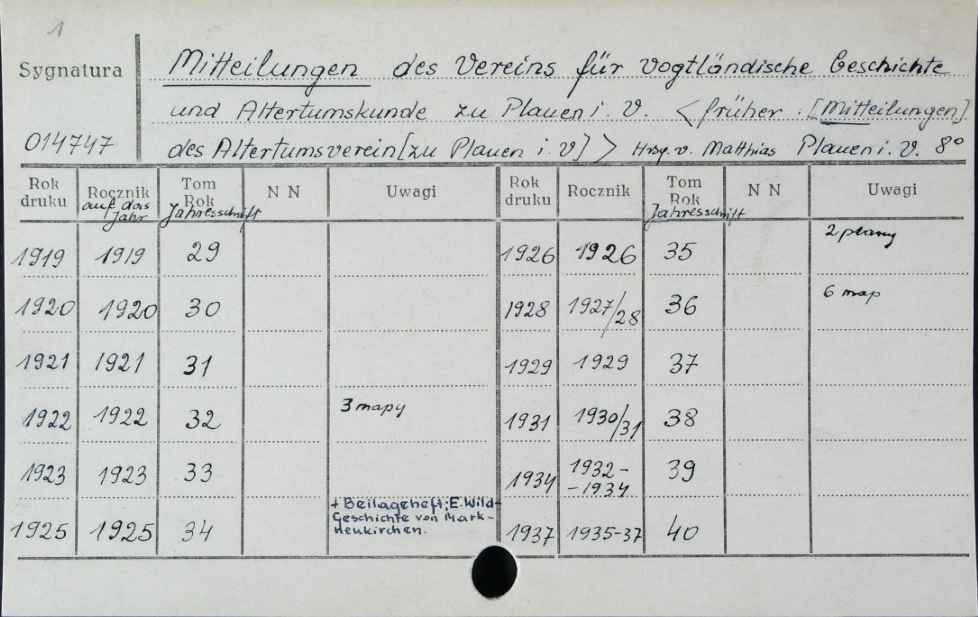 1
Sygnatura
Mitteilungen des Vereins für Vogtländische Geschichte
und Altertumskunde zu Plauen i. V. < früher : [Mitteilungen]
014747
des Altertumsverein [zu Plauen i. V] > Hrsg. v. Matthias Plauen i. V. 8°
Rok druku Rocznik auf das Jahr Tom Rok Jahresschrift N N Uwagi Rok druku Rocznik Tom Rok Jahresschrift N N Uwagi
1919 1919 29 1926 1926 35 2 plany
1920 1920 30 1928 1927/28 36 6 map
1921 1921 31 1929 1929 37
1922 1922 32 3 mapy 1931 1930/31 38
1923 1923 33 1934 1932-
-1934 39
1925 1925 34 + Beilageheft; E. Wild-
Geschichte von Mark-
neukirchen. 1937 1935-37 40